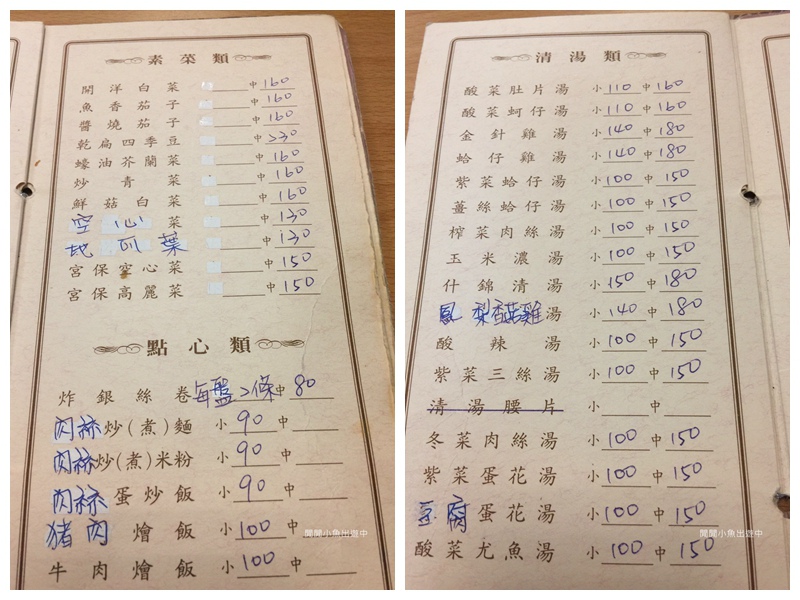 素菜類
開洋白菜 中160
魚香茄子 中160
醬燒茄子 中160
乾扁四季豆 中230
蠔油芥蘭菜 中160
炒青菜 中160
鮮菇白菜 中160
空心菜 中130
地瓜葉 中130
宮保空心菜 中150
宮保高麗菜 中150
點心類
炸銀絲卷 每盤2條 中80
肉絲炒(煮)麵 小90 中
肉絲炒(煮)米粉 小90 中
肉絲蛋炒飯 小90 中
豬肉燴飯 小100 中
牛肉燴飯 小100 中
開開小魚出遊中
清湯類
酸菜肚片湯 小110 中160
酸菜蚵仔湯 小110 中160
金針雞湯 小140 中180
蛤仔雞湯 小140 中180
紫菜蛤仔湯 小100 中150
薑絲蛤仔湯 小100 中150
榨菜肉絲湯 小100 中150
玉米濃湯 小100 中150
什錦清湯 小150 中180
鳳梨香菇雞湯 小140 中180
酸辣湯 小100 中150
紫菜三絲湯 小100 中150
清湯腰片 小 中
冬菜肉絲湯 小100 中150
紫菜蛋花湯 小100 中150
豆腐蛋花湯 小100 中150
酸菜尤魚湯 小100 中150
開開小魚出遊中